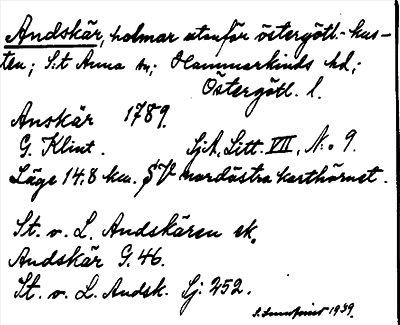 Andskär, holmar utanför östergötl.-kus-
ten; S:t Anna sn; Hammarkinds hd;
Östergötl. l.
Anskär 1789.
G. Klint. SjA, Litt. VII, N:o 9.
Läge 14,8 km. SV nordöstra karthörnet.
St. o. L. Andskären ek.
Andskär G. 46.
St. o. L. Andsk. Sj. 252.
1939.